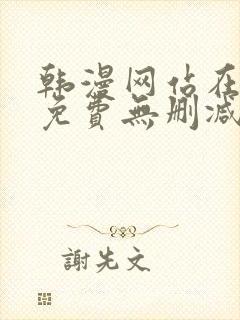 韩漫网站在
免費無删减
謝先文